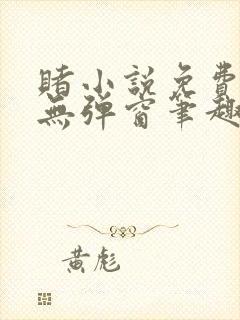 賭小説免費
無彈窗筆趣
黃彪